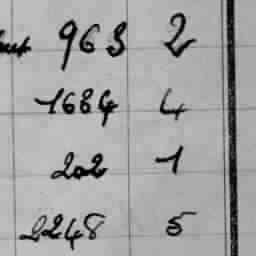 963 2
1684 4
202 1
2248 5